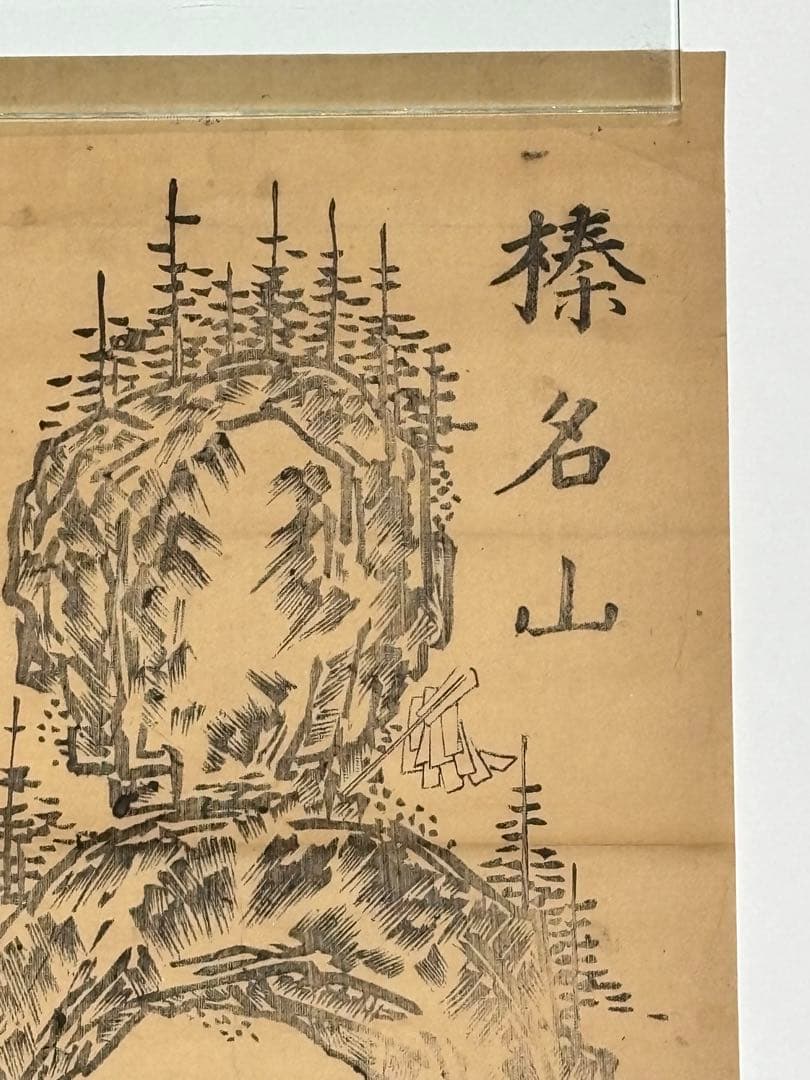 榛名山